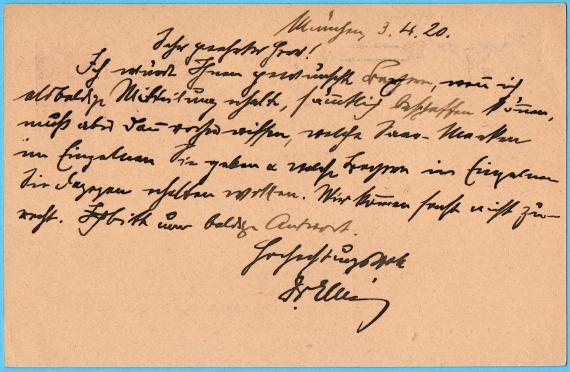 München, 3.4.20.
Sehr geehrter Herr!
Ich würde Ihnen gewünschte Bayern, wenn ich
alsbaldige Mitteilung erhalte, sämtlich beschaffen können,
muß aber dann vorher wissen, welche Saar-Marken
im Einzelnen Sie geben & welche Bayern im Einzelnen
Sie dagegen erhalten wollen. Wir kommen sonst nicht zu-
recht. Ich bitte um baldige Antwort.
Hochachtungsvoll